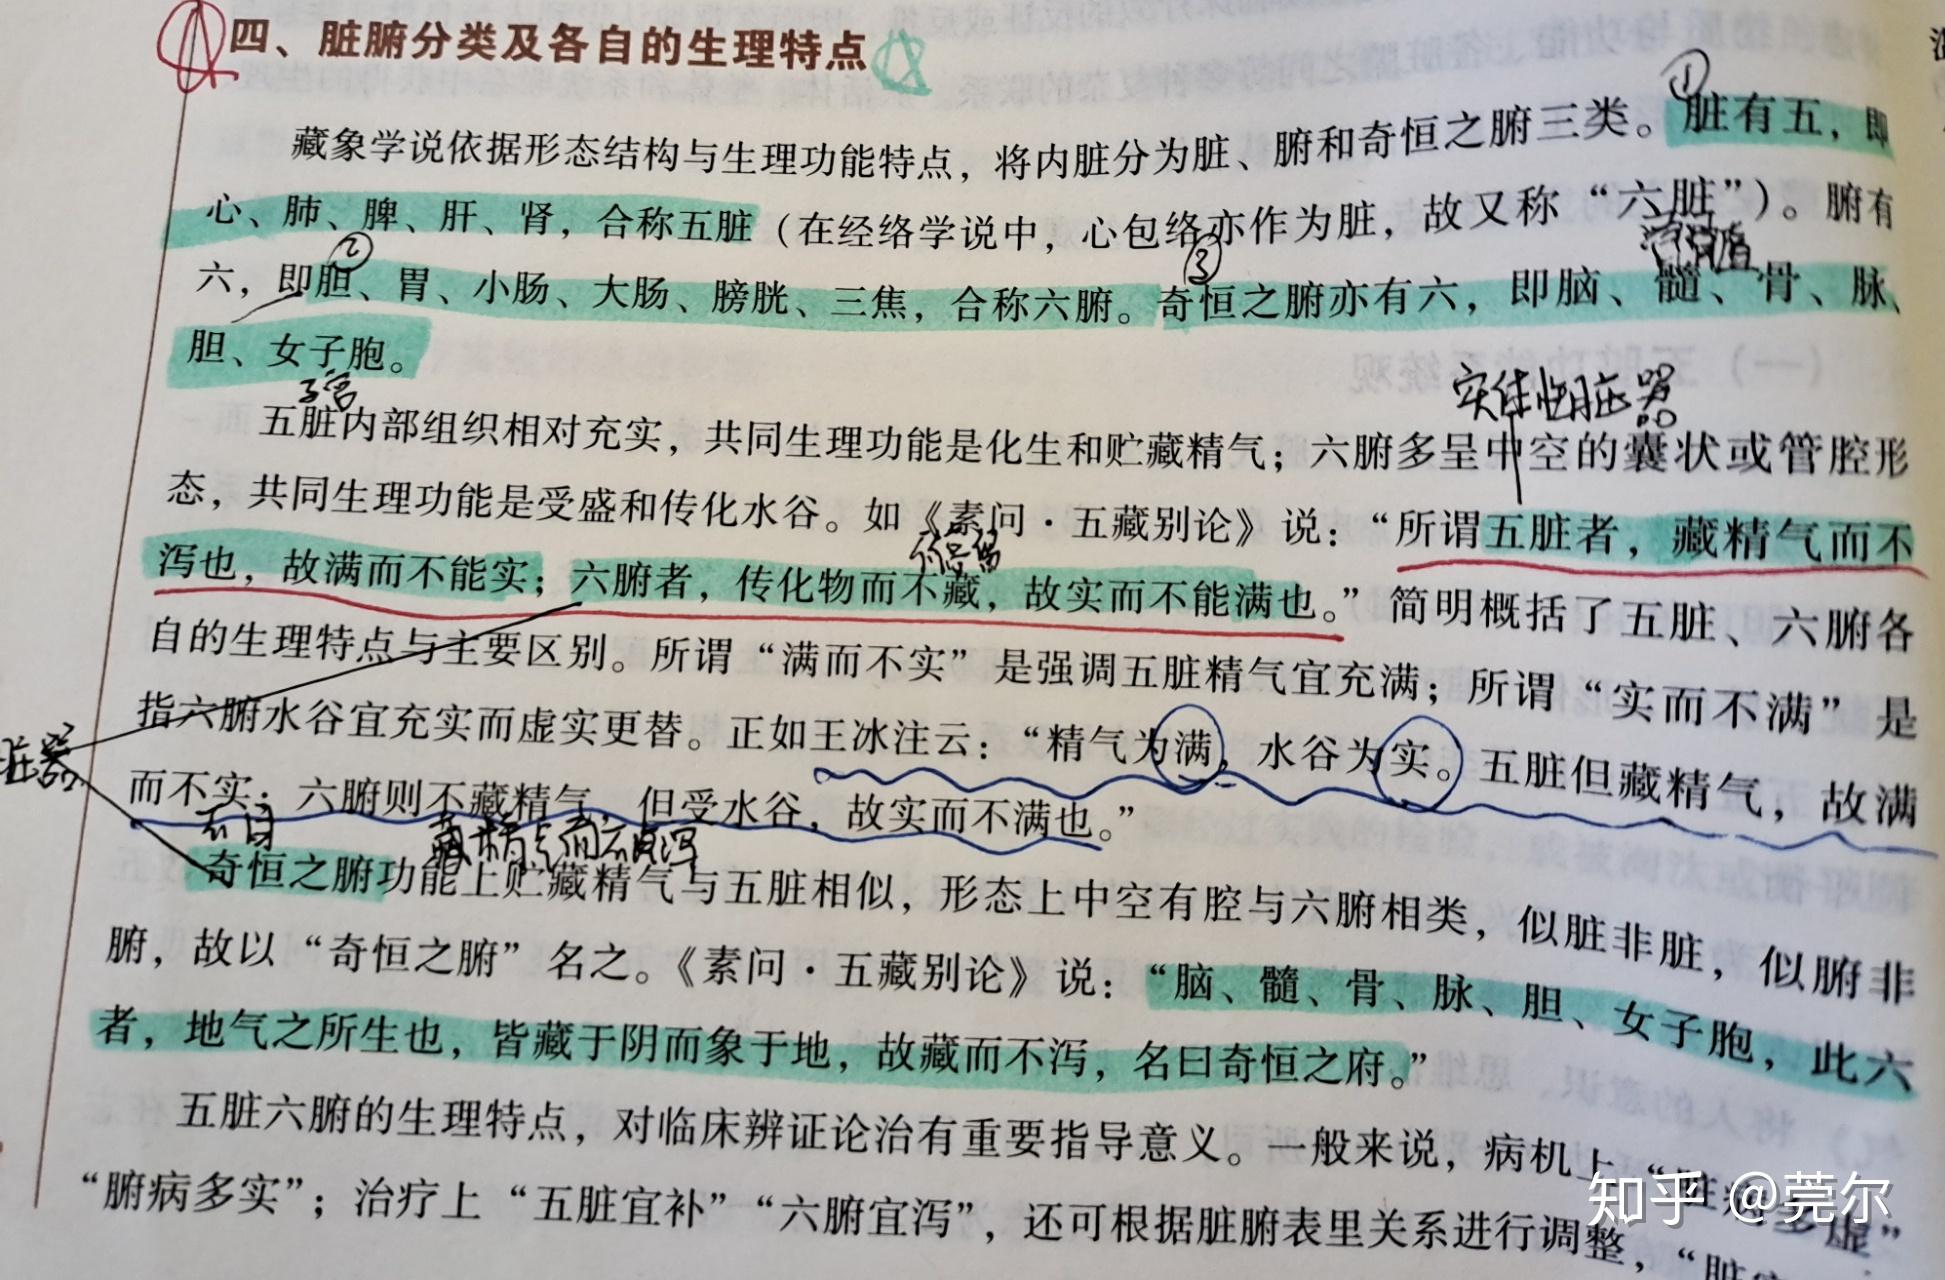 四、脏腑分类及各自的生理特点
①
藏象学说依据形态结构与生理功能特点，将内脏分为脏、腑和奇恒之腑三类。脏有五，即
心、肺、脾、肝、肾，合称五脏（在经络学说中，心包络亦作为脏，故又称“六脏”）。腑有
② ③
六，即胆、胃、小肠、大肠、膀胱、三焦，合称六腑。奇恒之腑亦有六，即脑、髓、骨、脉、
胆、女子胞。
子宫
实体性脏器
五脏内部组织相对充实，共同生理功能是化生和贮藏精气；六腑多呈中空的囊状或管腔形
态，共同生理功能是受盛和传化水谷。如《素问·五藏别论》说：“所谓五脏者，藏精气而不
泻也，故满而不能实；六腑者，传化物而不藏，故实而不能满也。”简明概括了五脏、六腑各
自的生理特点与主要区别。所谓“满而不实”是强调五脏精气宜充满；所谓“实而不满”是
指六腑水谷宜充实而虚实更替。正如王冰注云：“精气为满，水谷为实。五脏但藏精气，故满
脏器
而不实；六腑则不藏精气，但受水谷，故实而不满也。”
奇恒之腑功能上贮藏精气与五脏相似，形态上中空有腔与六腑相类，似脏非脏，似腑非
腑，故以“奇恒之腑”名之。《素问·五藏别论》说：“脑、髓、骨、脉、胆、女子胞，此六
者，地气之所生也，皆藏于阴而象于地，故藏而不泻，名曰奇恒之府。”
五脏六腑的生理特点，对临床辨证论治有重要指导意义。一般来说，病机上“脏病多虚”
“腑病多实”；治疗上“五脏宜补”“六腑宜泻”，还可根据脏腑表里关系进行调整，“脏
知乎 @莞尔